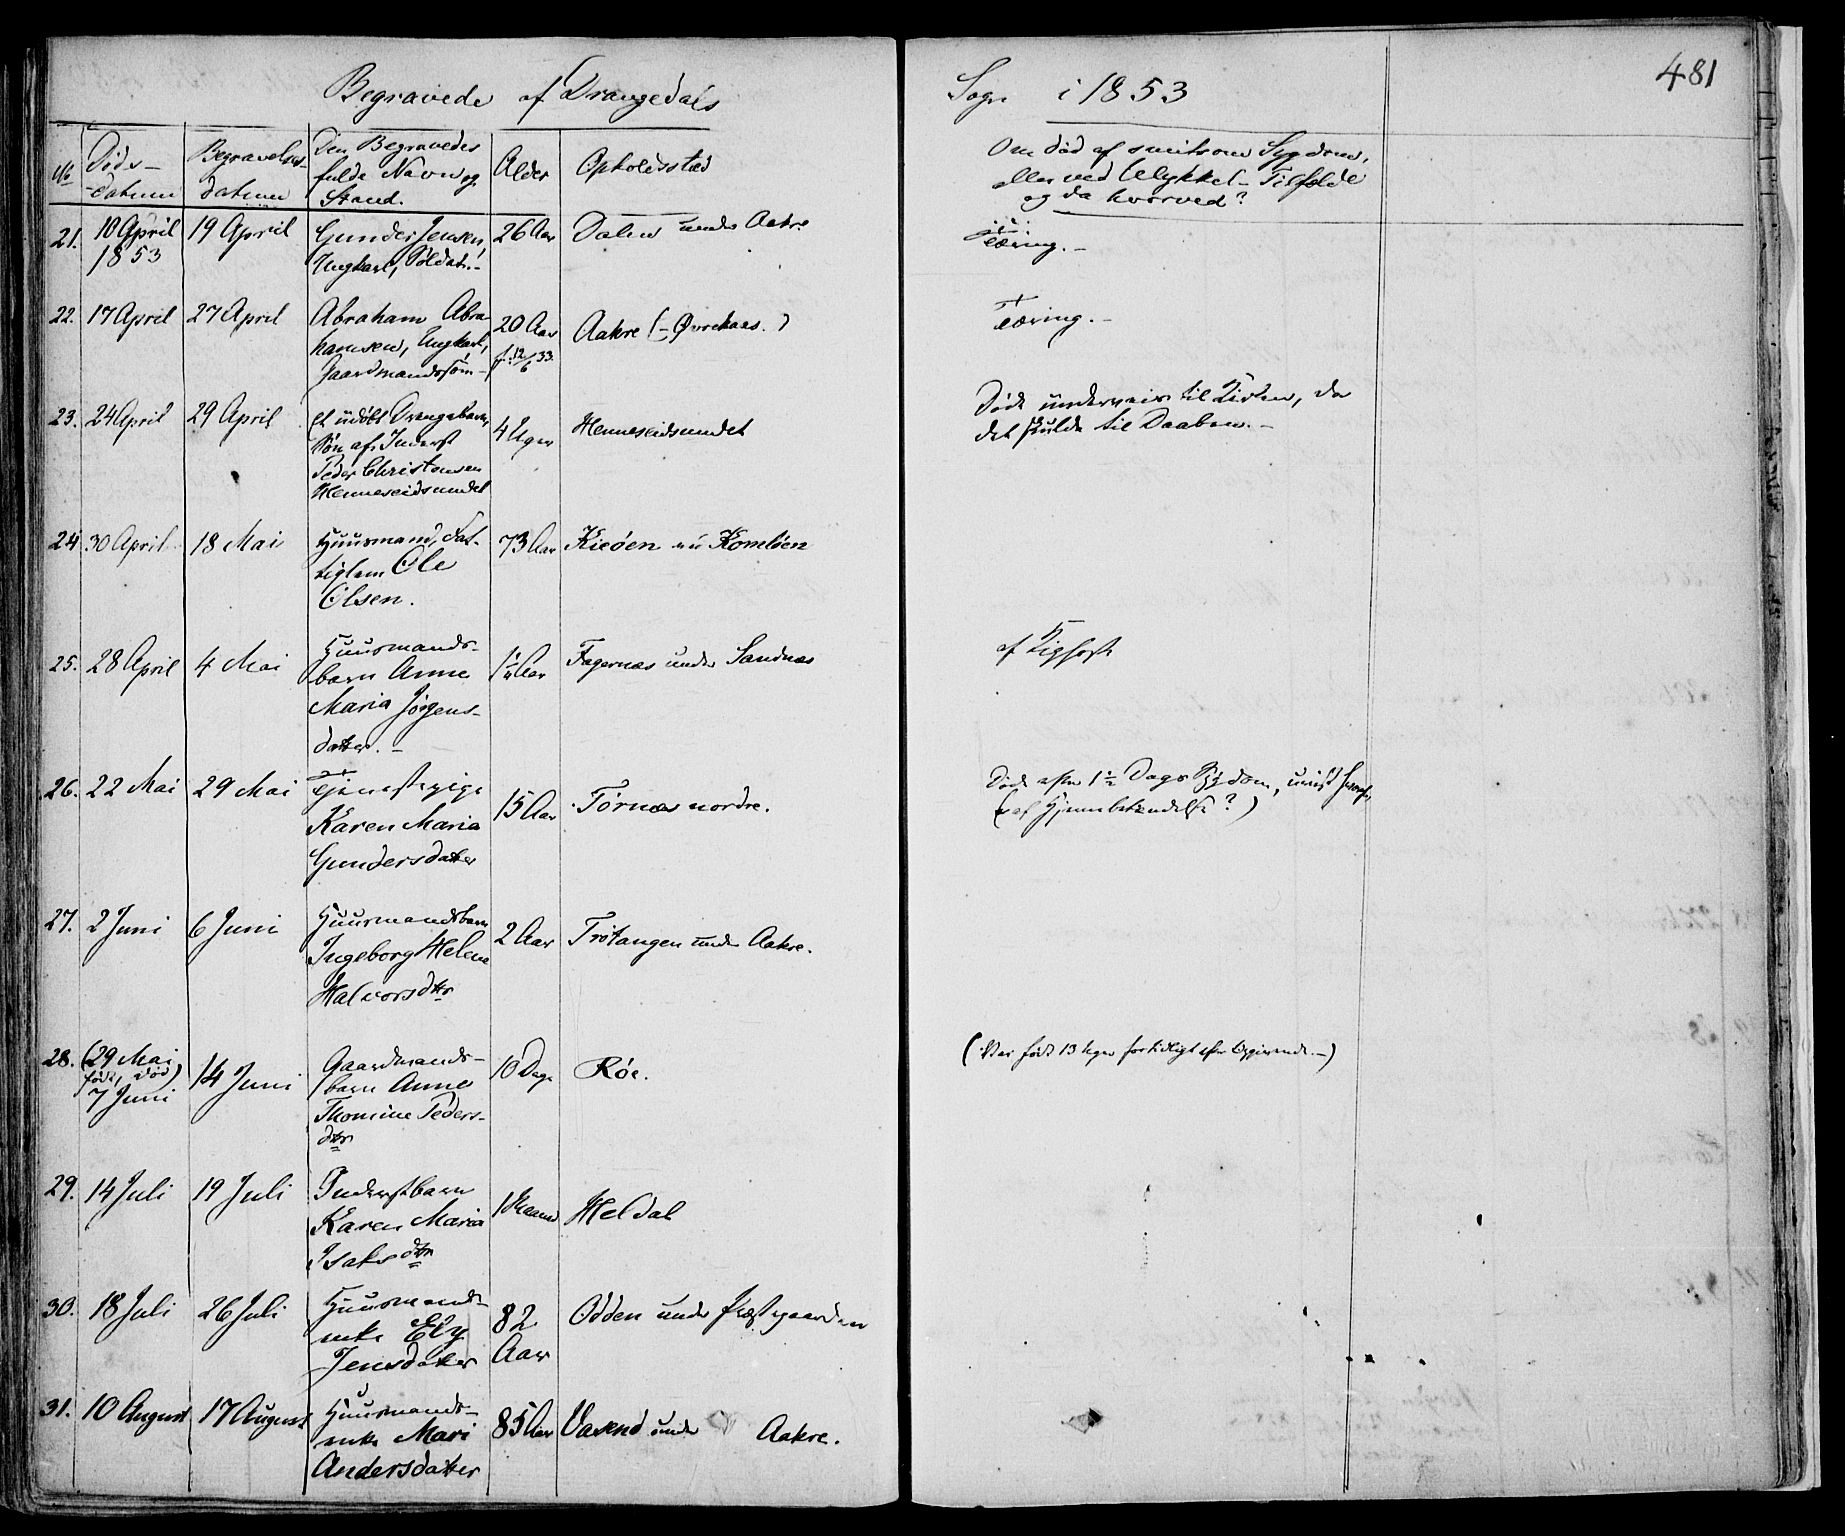 Begravede af Drangedals Sogn i 1853 481
№ Døds-datum Begravelses-datum Den Begravedes fulde Navn og Stand. Alder Opholdssted Om død af smitsom Sygdom, eller ved Ulykkes-Tilfælde og da hvorved?
21. 10 April 1853 19 April Gunder Jensen, Ungkarl, Soldat.- 26 Aar Dalen under Aakre Tæring.-
22. 17 April 27 April Abraham Abrahamsen, Ungkarl, Gaardmandssøn- 20 Aar f. 12/6 33. Aakre (- Øvrekaas.) Tæring.-
23. 24 April 29 April et udøbt Drengebarn, Søn af Inderst Peder Christensen Henneseidsundet 4 Uger Henneseidsundet Døde underveis til Kirken, da det skulde til Daaben.-
24 30 April 18 Mai Huusmand, Fattiglem Ole Olsen. 73 Aar Kieøen under
25. 28 April 4 Mai Huusmands-barn Anne Maria Jørgens-datter.- Aar Fagernæs under Sandnæs af Kighoste
26. 22 Mai 29 Mai Tjenestepige Karen Maria Gundersdatter 15 Aar Tørnæs nordre. Døde efter 1½ Dags Sygdom, (af Hjernebetændelse?)
27. 2 Juni 6 Juni Huusmandsbarn Ingeborg Helene Halvorsdtr 2 Aar Trøtangen under Aakre.
28. (29 Mai født, død) 7 Juni 14 Juni Gaardmands-barn Anne Thomine Peders-dtr 10 Dage Røe. (Var født 13 Uger for tidligt efter Opgivende.-)
29. 14 Juli 19 Juli Inderstbarn Karen Maria Isaksdtr 1 Maaned Heldal
30. 18 Juli 26 Juli Huusmands-enke Elg Jensdatter 82 Aar Odden under Præstegaarden
31. 10 August 17 August Huusmands-enke Mari Andersdatter 85 Aar Vasend under Aakre.